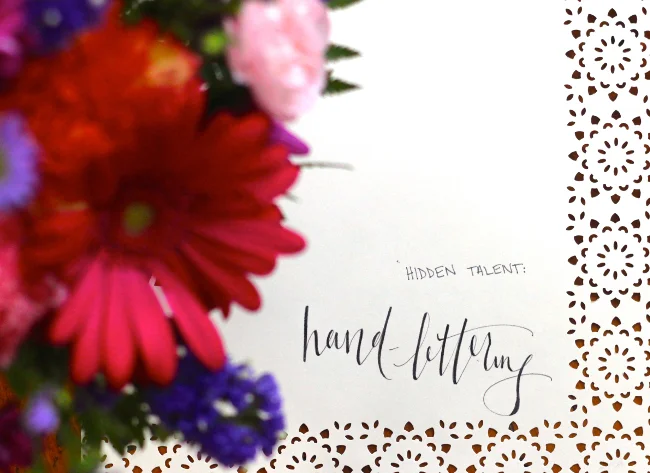 HIDDEN TALENT:
hand-lettering